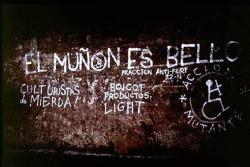 EL MUÑON ES BELLO
FRACCION ANTI-PERF
CULTURISTAS
de MIERDA!
BOICOT
PRODUCTOS
LIGHT
ACCION
MUTANTE